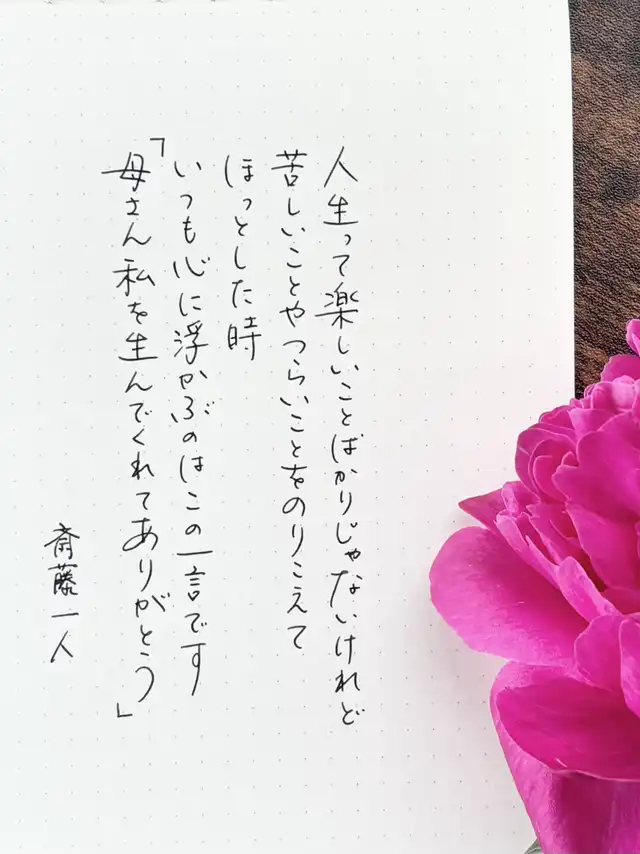 人生って楽しいことばかりじゃないけれど
苦しいことやつらいことをのりこえて
ほっとした時
いつも心に浮かぶのはこの一言です
「母さん私を生んでくれてありがとう」
斎藤一人